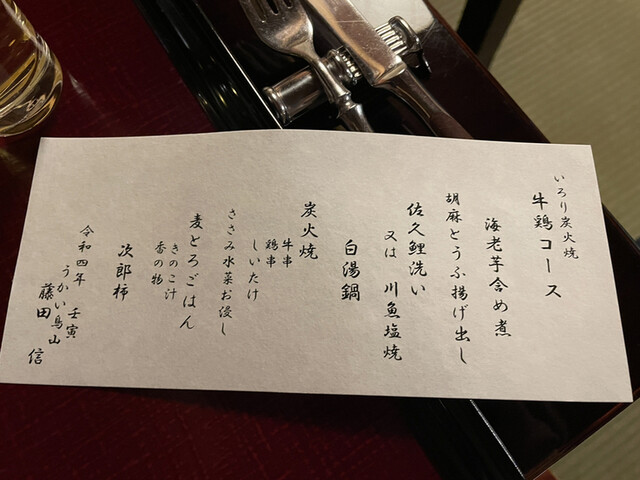 いろり炭火焼
牛鶏コース
海老芋含め煮
胡麻とうふ揚げ出し
佐久鯉洗い
又は 川魚塩焼
白湯鍋
炭火焼
牛串
鶏串
しいたけ
ささみ水菜お浸し
麦とろごはん
きのこ汁
香の物
次郎柿
令和四年 壬寅
うかい鳥山
藤田 信